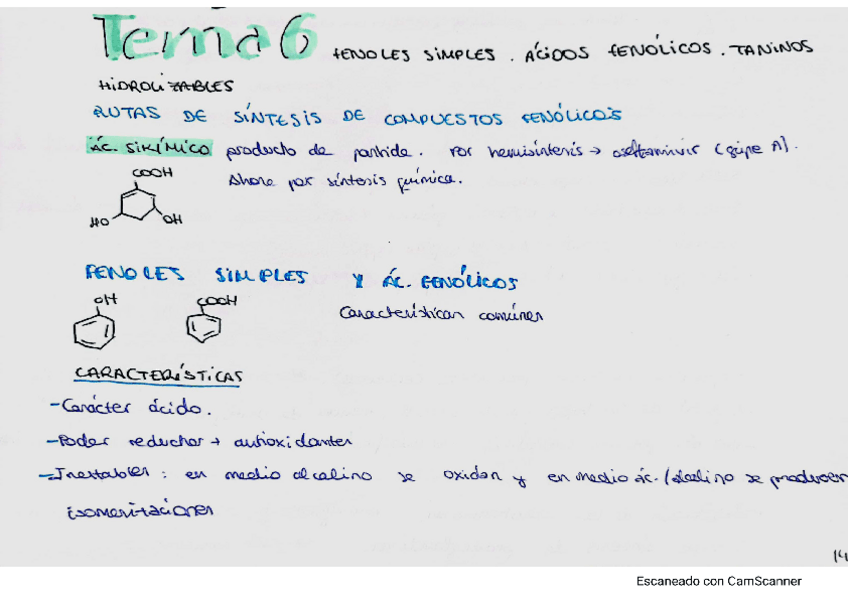 Tema 6 FENOLES SIMPLES. ÁCIDOS FENÓLICOS. TANINOS
HIDROLIZABLES
RUTAS DE SÍNTESIS DE COMPUESTOS FENÓLICOS
ÁC. SIKÍMICO producto de partida. Por hemisíntesis → oseltamivir (gripe A).
COOH
Ahora por síntesis química.
HO
OH
FENOLES SIMPLES Y ÁC. FENÓLICOS
OH COOH
Características comunes
CARACTERÍSTICAS
- Carácter ácido.
- Poder reductor → antioxidantes
- Inestables: en medio alcalino se oxidan y en medio ác./alcalino se producen
isomerizaciones
14
Escaneado con CamScanner